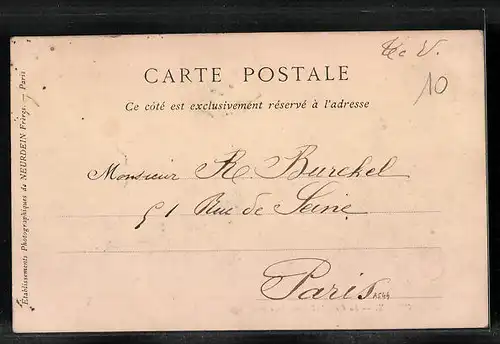 CARTE POSTALE
Ce côté est exclusivement réservé à l'adresse
10
Monsieur R. Burckel
51 Rue de Seine
Paris
Etablissements Photographiques de NEURDEIN Frères. — Paris